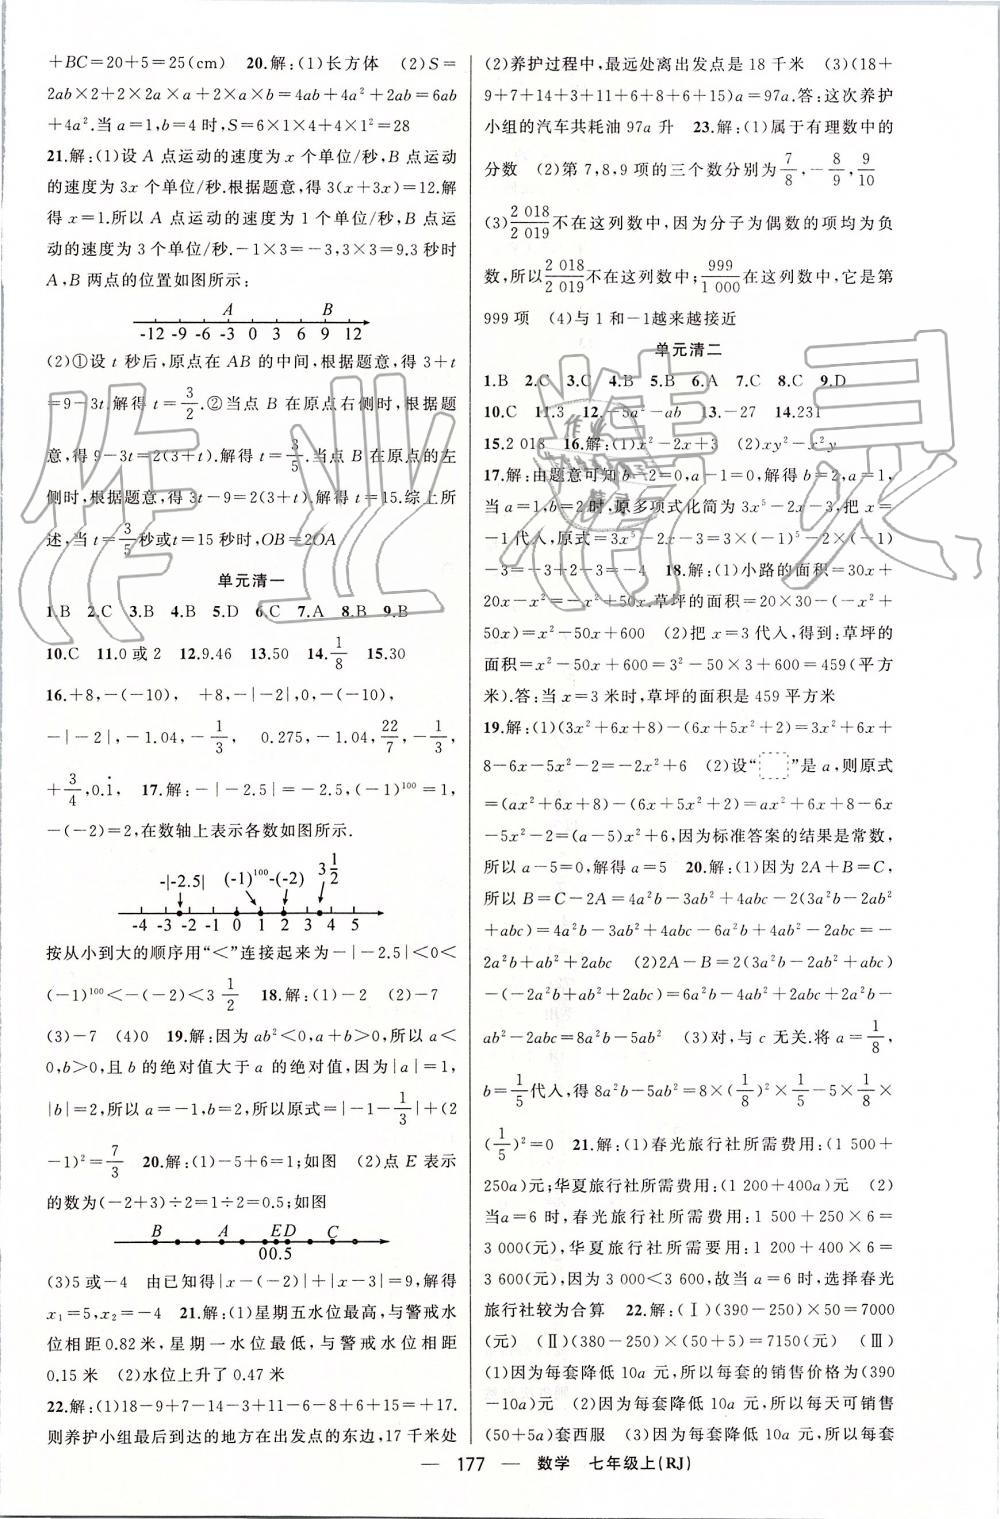 +BC=20+5=25(cm)　20.解:(1)长方体　(2)S=
2ab×2+2×2a×a+2×a×b=4ab+4a²+2ab=6ab
+4a².当a=1,b=4时,S=6×1×4+4×1²=28
21.解:(1)设A点运动的速度为x个单位/秒,B点运动
的速度为3x个单位/秒.根据题意,得3(x+3x)=12.解
得x=1.所以A点运动的速度为1个单位/秒,B点运
动的速度为3个单位/秒.-1×3=-3,3×3=9.3秒时
A,B两点的位置如图所示:
A B
-12 -9 -6 -3 0 3 6 9 12
(2)①设t秒后,原点在AB的中间,根据题意,得3+t
=9-3t.解得t=3/2.②当点B在原点右侧时,根据题
意,得9-3t=2(3+t).解得t=3/5.当点B在原点的左
侧时,根据题意,得3t-9=2(3+t).解得t=15.综上所
述,当t=3/5秒或t=15秒时,OB=2OA
单元清一
1.B 2.C 3.B 4.B 5.D 6.C 7.A 8.B 9.B
10.C 11.0或2 12.9.46 13.50 14.1/8 15.30
16.+8,-(-10),　+8,-|-2|,0,-(-10),
-|-2|,-1.04,-1/3,　0.275,-1.04,22/7,-1/3,
+3/4,0.1̇　17.解:-|-2.5|=-2.5,(-1)¹⁰⁰=1,
-(-2)=2,在数轴上表示各数如图所示.
-|-2.5| (-1)¹⁰⁰ -(-2) 3 1/2
-4 -3 -2 -1 0 1 2 3 4 5
按从小到大的顺序用“<”连接起来为-|-2.5|<0<
(-1)¹⁰⁰<-(-2)<3 1/2　18.解:(1)-2　(2)-7
(3)-7　(4)0　19.解:因为ab²<0,a+b>0,所以a<
0,b>0,且b的绝对值大于a的绝对值.因为|a|=1,
|b|=2,所以a=-1,b=2,所以原式=|-1-1/3|+(2
-1)²=7/3　20.解:(1)-5+6=1;如图　(2)点E表示
的数为(-2+3)÷2=1÷2=0.5;如图
B A ED C
00.5
(3)5或-4　由已知得|x-(-2)|+|x-3|=9,解得
x₁=5,x₂=-4　21.解:(1)星期五水位最高,与警戒水
位相距0.82米,星期一水位最低,与警戒水位相距
0.15米　(2)水位上升了0.47米
22.解:(1)18-9+7-14-3+11-6-8+6+15=+17.
则养护小组最后到达的地方在出发点的东边,17千米处
(2)养护过程中,最远处离出发点是18千米　(3)(18+
9+7+14+3+11+6+8+6+15)a=97a.答:这次养护
小组的汽车共耗油97a升　23.解:(1)属于有理数中的
分数　(2)第7,8,9项的三个数分别为7/8,-8/9,9/10
(3)2 018/2 019不在这列数中,因为分子为偶数的项均为负
数,所以2 018/2 019不在这列数中;999/1 000在这列数中,它是第
999项　(4)与1和-1越来越接近
单元清二
1.B 2.C 3.C 4.B 5.B 6.A 7.C 8.C 9.D
10.C 11.3 12.-5a²-ab 13.-27 14.231
15.2 018　16.解:(1)x²-2x+3　(2)xy²-x²y
17.解:由题意可知b-2=0,a-1=0,解得b=2,a=1,
当a=1,b=2时,原多项式化简为3x⁵-2x-3,把x=
-1代入,原式=3x⁵-2x-3=3×(-1)⁵-2×(-1)
-3=-3+2-3=-4　18.解:(1)小路的面积=30x+
20x-x²=-x²+50x.草坪的面积=20×30-(-x²+
50x)=x²-50x+600　(2)把x=3代入,得到:草坪的
面积=x²-50x+600=3²-50×3+600=459(平方
米).答:当x=3米时,草坪的面积是459平方米
19.解:(1)(3x²+6x+8)-(6x+5x²+2)=3x²+6x+
8-6x-5x²-2=-2x²+6　(2)设“ ”是a,则原式
=(ax²+6x+8)-(6x+5x²+2)=ax²+6x+8-6x
-5x²-2=(a-5)x²+6,因为标准答案的结果是常数,
所以a-5=0,解得a=5　20.解:(1)因为2A+B=C,
所以B=C-2A=4a²b-3ab²+4abc-2(3a²b-2ab²
+abc)=4a²b-3ab²+4abc-6a²b+4ab²-2abc=-
2a²b+ab²+2abc　(2)2A-B=2(3a²b-2ab²+abc)
-(-2a²b+ab²+2abc)=6a²b-4ab²+2abc+2a²b-
ab²-2abc=8a²b-5ab²　(3)对,与c无关.将a=1/8,
b=1/5代入,得8a²b-5ab²=8×(1/8)²×1/5-5×1/8×
(1/5)²=0　21.解:(1)春光旅行社所需费用:(1 500+
250a)元;华夏旅行社所需费用:(1 200+400a)元　(2)
当a=6时,春光旅行社所需费用:1 500+250×6=
3 000(元),华夏旅行社所需要用:1 200+400×6=
3 600(元),因为3 000<3 600,故当a=6时,选择春光
旅行社较为合算　22.解:(Ⅰ)(390-250)×50=7000
(元)　(Ⅱ)(380-250)×(50+5)=7150(元)　(Ⅲ)
(1)因为每套降低10a元,所以每套的销售价格为(390
-10a)元　(2)因为每套降低10a元,所以每天可销售
(50+5a)套西服　(3)因为每套降低10a元,所以每套
— 177 —　数学　七年级上(RJ)
作业精灵